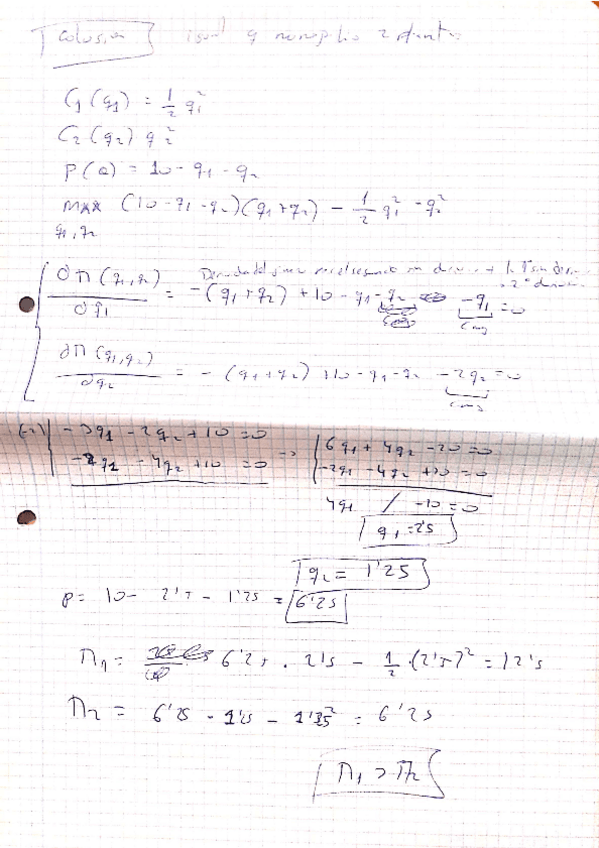 Colusión igual q monopolio 2 plantas
C₁(q₁) = 1/2 q₁²
C₂(q₂) q₂²
P(Q) = 10 - q₁ - q₂
MAX (10 - q₁ - q₂)(q₁ + q₂) - 1/2 q₁² - q₂²
q₁, q₂
∂Π(q₁,q₂)/∂q₁ = -(q₁+q₂) + 10 - q₁ - q₂ - q₁ = 0
Cmg
∂Π(q₁,q₂)/∂q₂ = -(q₁+q₂) + 10 - q₁ - q₂ - 2q₂ = 0
Cmg
(-2) -3q₁ - 2q₂ + 10 = 0 => 6q₁ + 4q₂ - 20 = 0
-2q₁ - 4q₂ + 10 = 0 -2q₁ - 4q₂ + 10 = 0
4q₁ / -10 = 0
q₁ = 2'5
q₂ = 1'25
P = 10 - 2'5 - 1'25 = 6'25
Π₁ = 6'25 · 2'5 - 1/2 · (2'5)² = 12'5
Π₂ = 6'25 · 1'25 - 1'25² = 6'25
Π₁ > Π₂